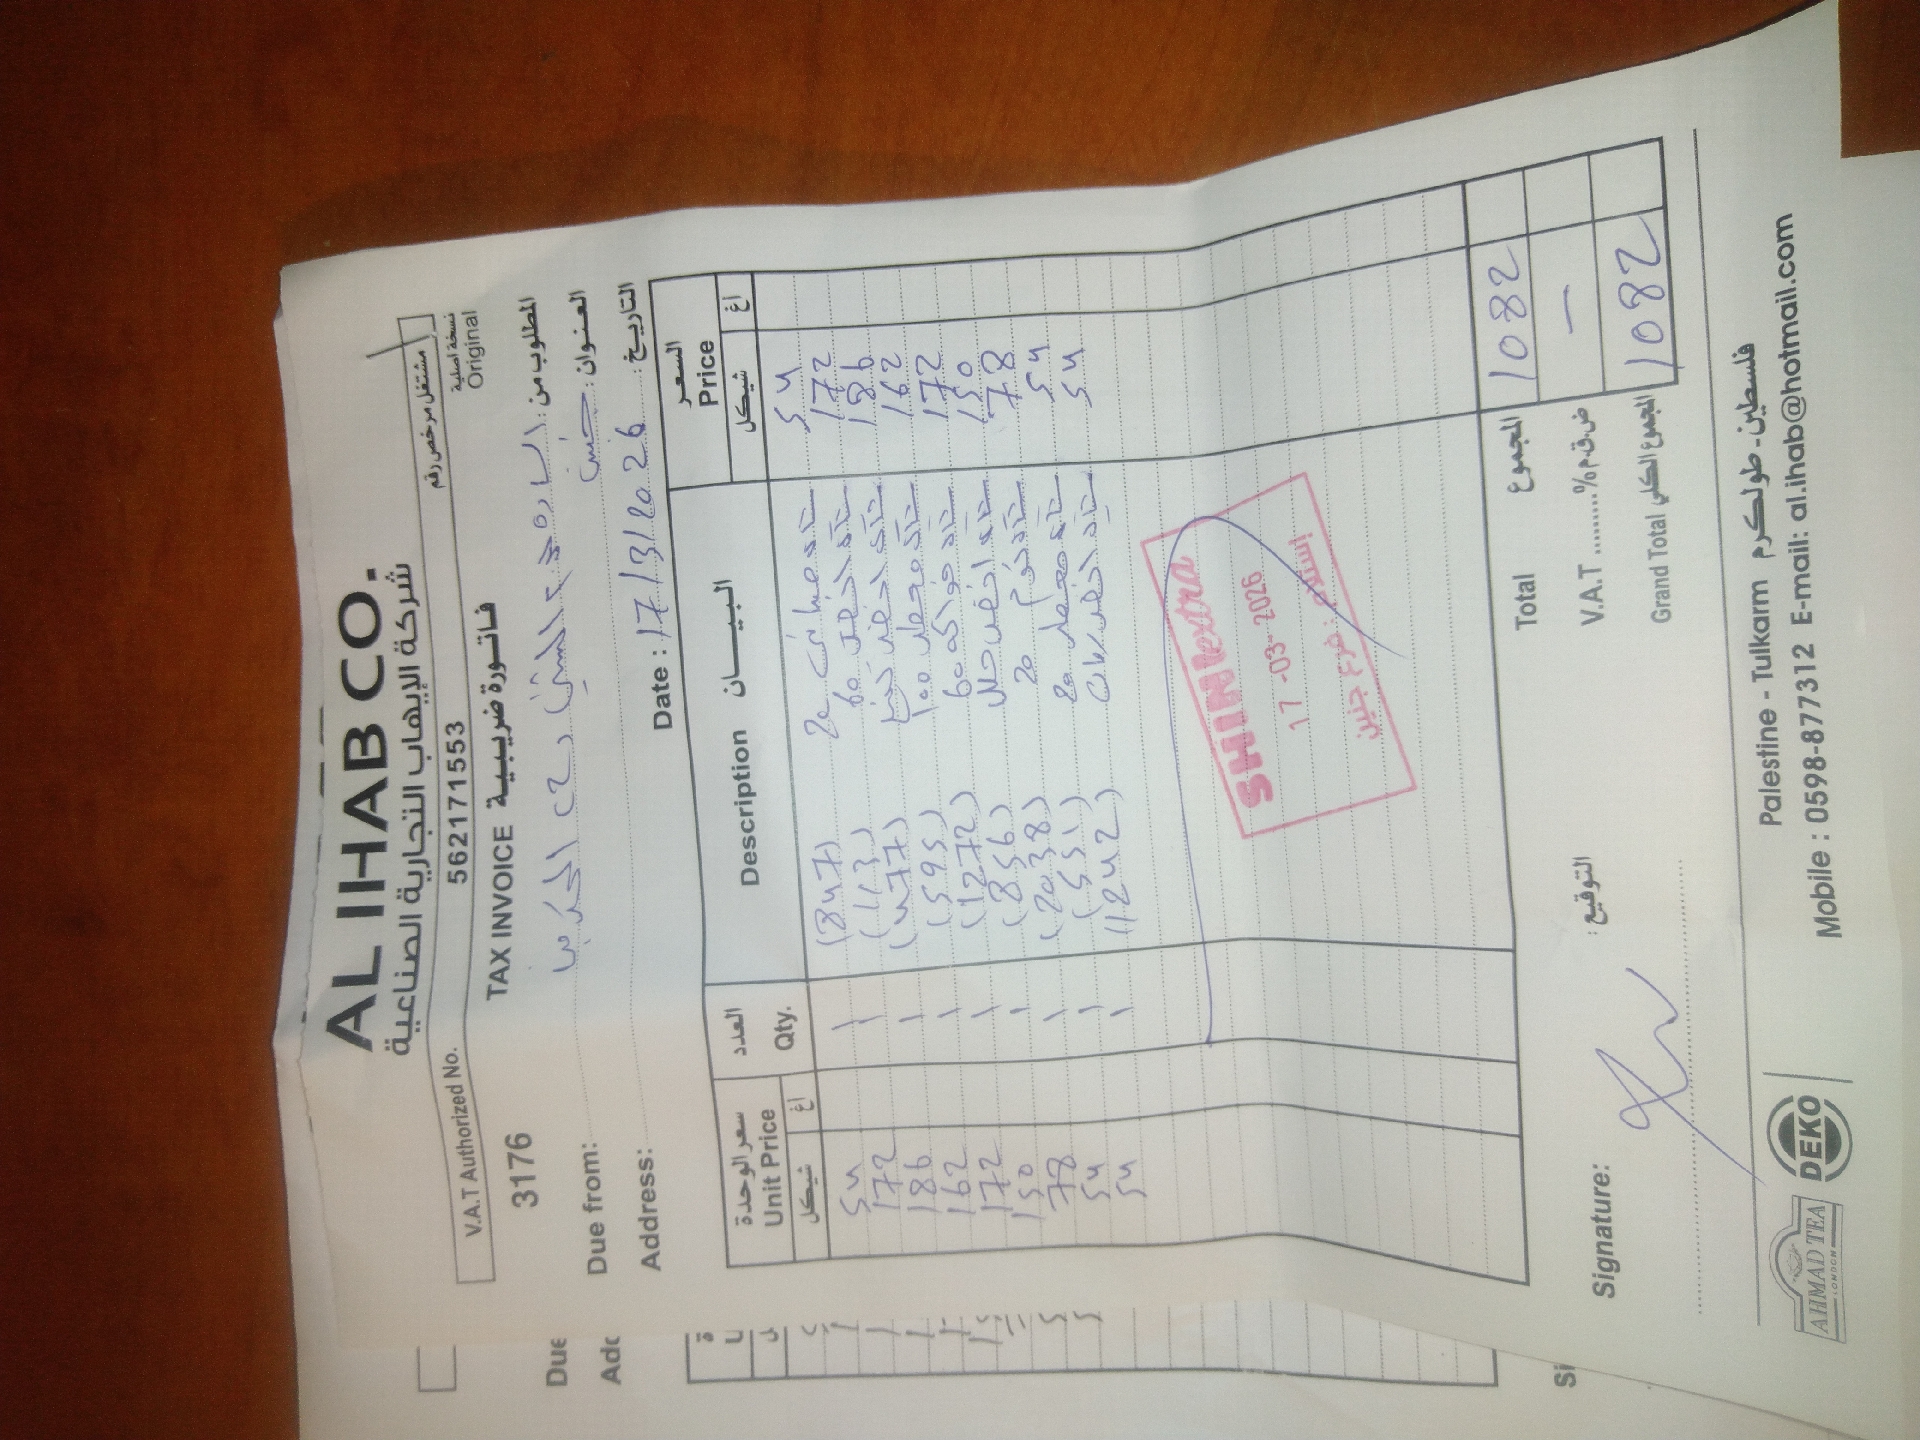 AL IHAB CO.
شركة الإيهاب التجارية الصناعية
V.A.T Authorized No. 562171553 مشتغل مرخص رقم
3176 TAX INVOICE فاتورة ضريبية نسخة أصلية Original
Due from: المطلوب من:
Address: العنوان: جنين
Date: 17/3/2026 التاريخ:
سعر الوحدة Unit Price العدد Qty. Description البيـــان السعر Price
شيكل اغ شيكل اغ
54 1 (847) 20 شاي 54
172 1 (113) 60 شاي اخضر 172
186 1 (477) شاي اخضر 186
162 1 (595) 100 شاي 162
172 1 (1272) 60 شاي فواكه 172
150 1 (856) شاي اخضر 150
78 1 (2038) 20 شاي 78
54 1 (551) 20 شاي 54
54 1 (1242) شاي اخضر 54
SHINI extra
17-03-2026
إستلام: فرع جنين
Total المجموع 1082
V.A.T ........% ض.ق.م -
Grand Total المجموع الكلي 1082
Signature: التوقيع:
AHMAD TEA
LONDON
DEKO
Palestine - Tulkarm فلسطين - طولكرم
Mobile : 0598-877312 E-mail: al.ihab@hotmail.com